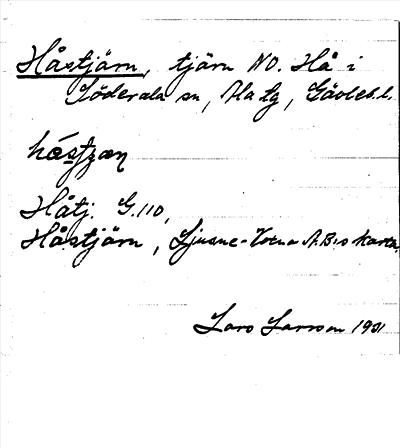 Håstjärn, tjärn NO. Hå i
Söderala sn, Ha lg, Gävleb. l.
håstjæɳ
Håtj. G.110,
Håstjärn, Ljusne-Voxna A.B:s karta,
Lars Larsson 1931